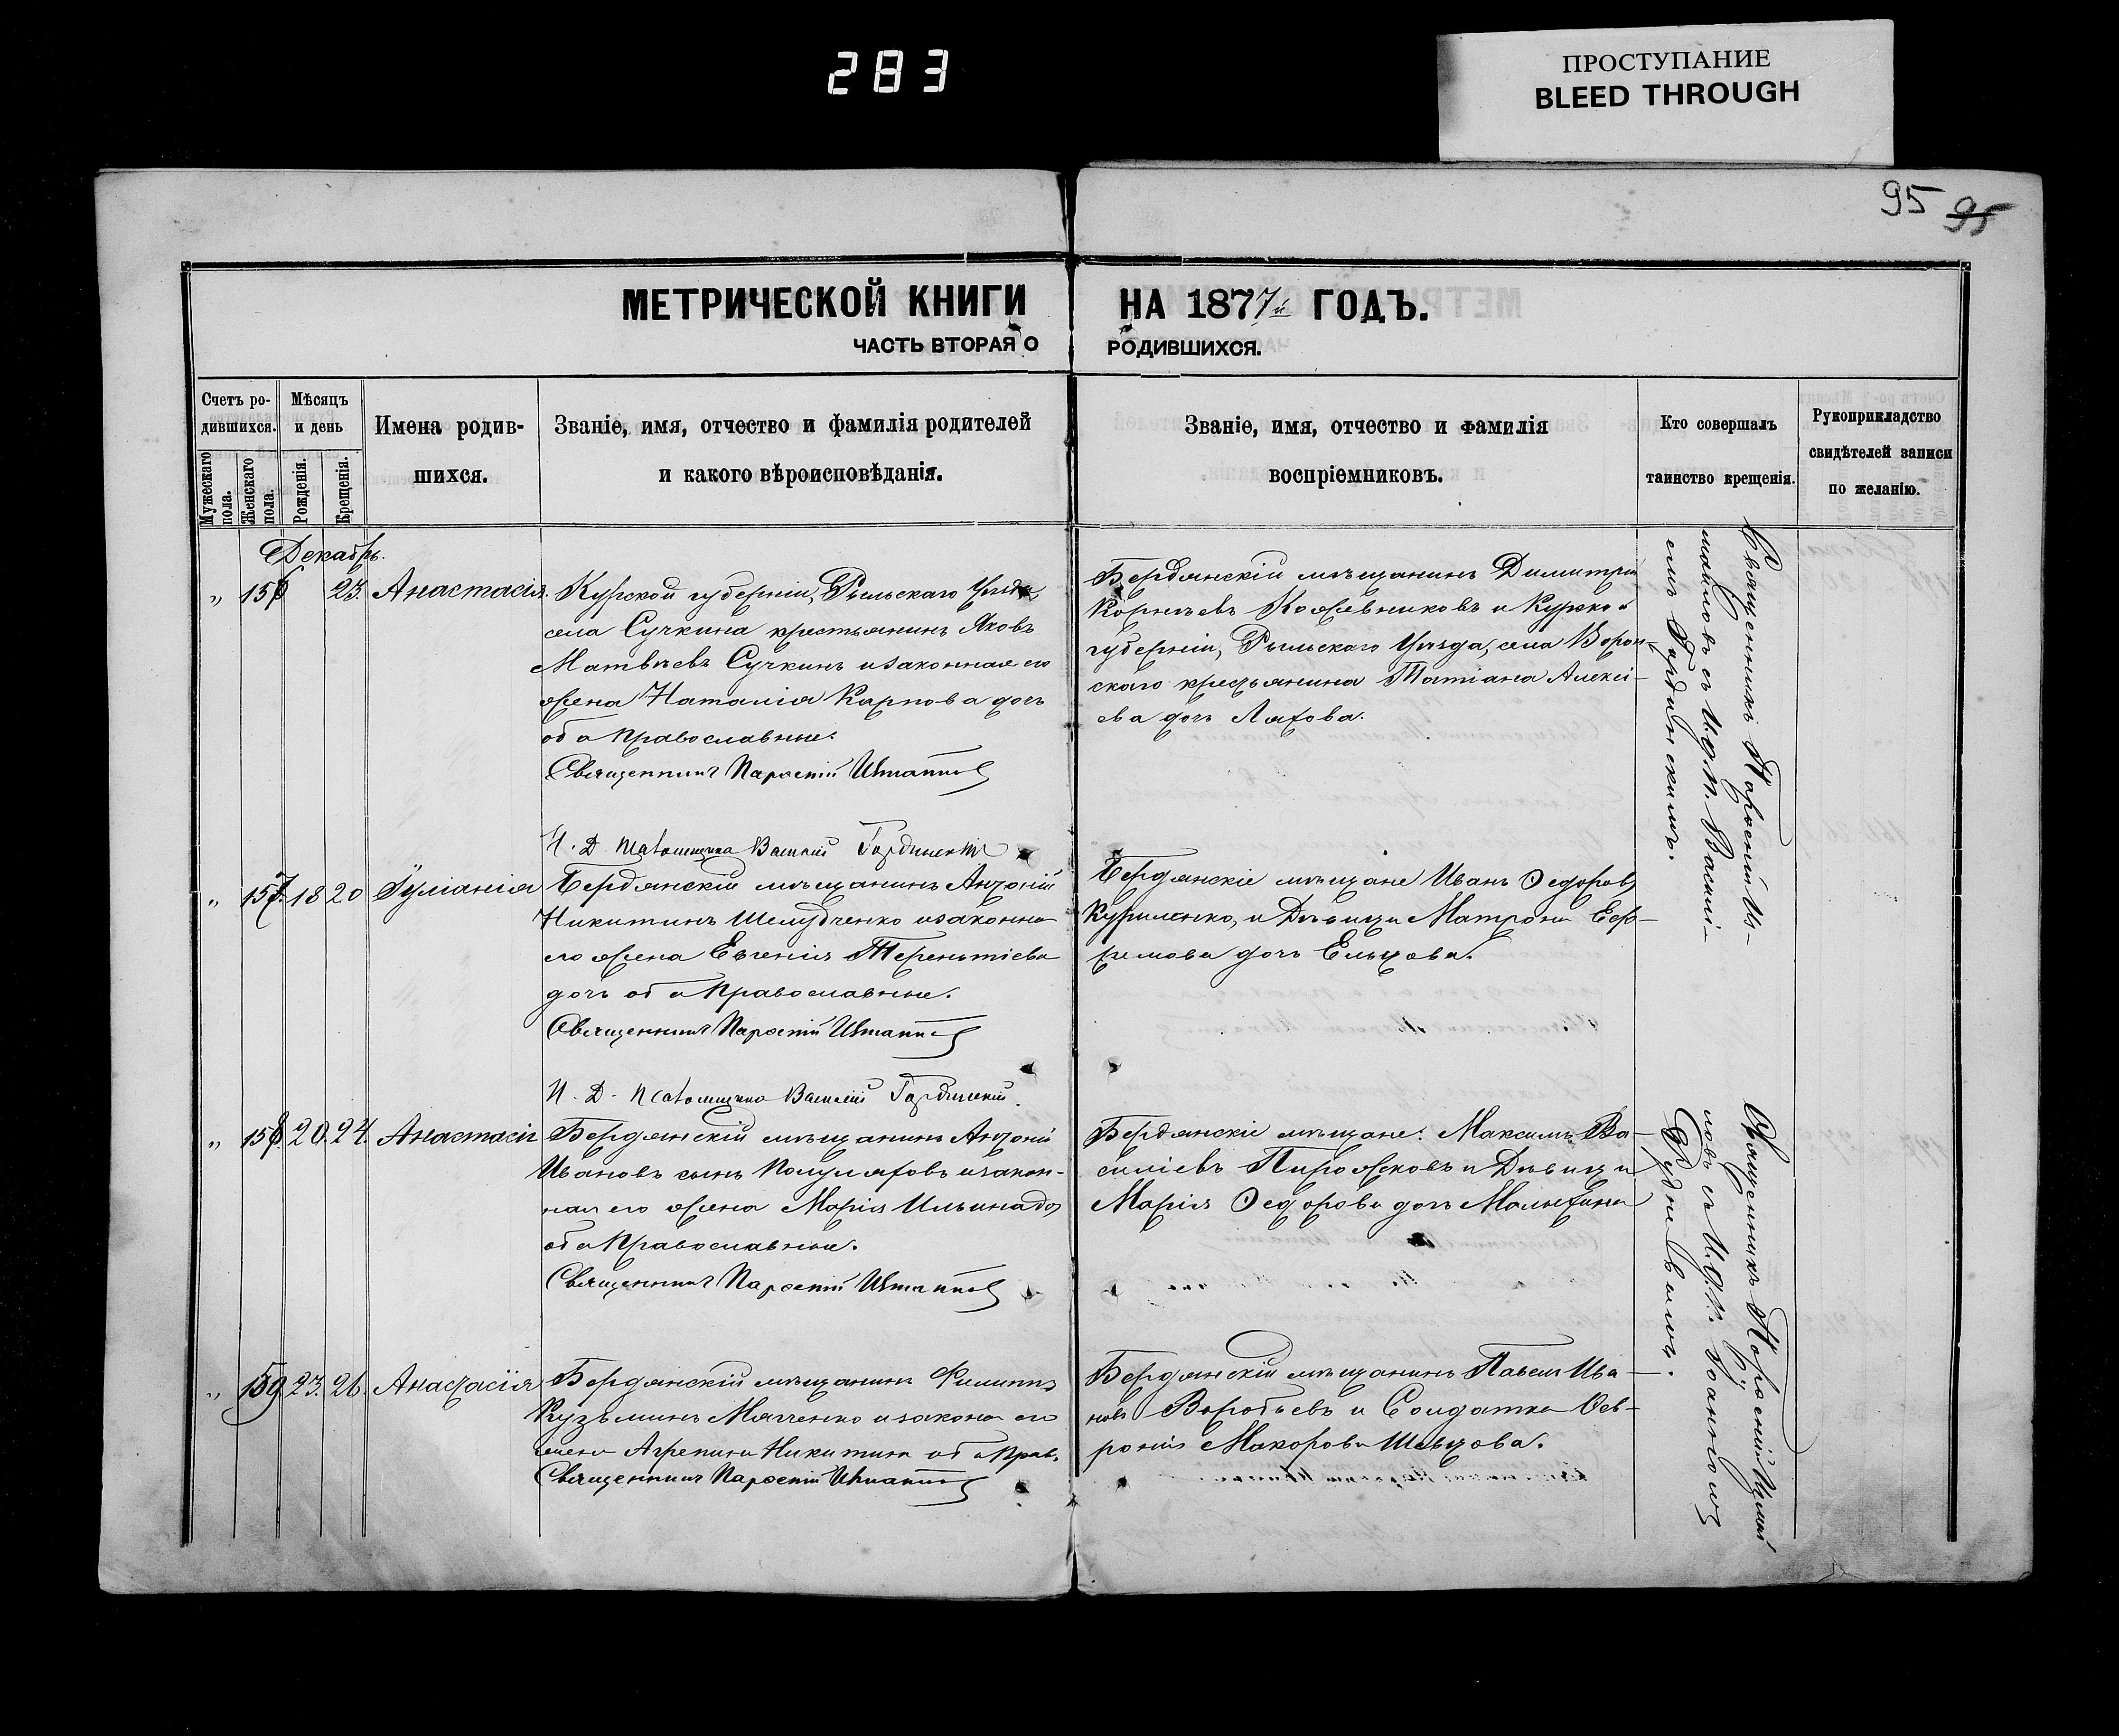 283
ПРОСТУПАНИЕ
BLEED THROUGH
95 95
МЕТРИЧЕСКОЙ КНИГИ НА 1877й ГОДЪ.
ЧАСТЬ ВТОРАЯ О РОДИВШИХСЯ.
Счетъ ро-
дившихся.
Мужескаго пола.
Женскаго пола.
Мѣсяцъ
и день
Рожденія.
Крещенія.
Имена родив-
шихся.
Званіе, имя, отчество и фамилія родителей
и какого вѣроисповѣданія.
Званіе, имя, отчество и фамилія
воспріемниковъ.
Кто совершалъ
таинство крещенія.
Рукоприкладство
свидѣтелей записи
по желанію.
Декабрь.
" 156 23. Анастасія.
Курской губерніи, Рыльскаго Уѣзда,
села Сучкина крестьянинъ Яковъ
Матвѣевъ Сучкинъ и законная его
жена Наталія Карпова дочь
оба Православные.
Священникъ Парѳеній
И. Д. Псаломщика Василій Гординскій
Бердянскій мѣщанинъ Димитрій
Корнѣевъ Кожевниковъ и Курской
губерніи, Рыльскаго Уѣзда, села Ворон-
скаго крестьянина Татіана Алексі-
ева дочь Ляхова.
Священникъ Парѳеній Из-
майловъ съ И. д. п. Василі-
емъ Гординскимъ.
" 157. 18 20 Іуліанія
Бердянскій мѣщанинъ Антоній
Никитинъ Шелудченко и законна
его жена Евгенія Терентіева
дочь оба Православные.
Священникъ Парѳеній
И. Д. Псаломщика Василій Гординскій.
Бердянскіе мѣщане Иванъ Ѳедоровъ
Куриленко, и Дѣвица Матрона Еф-
ремова дочь Ельцова.
" 158. 20. 24. Анастасія
Бердянскій мѣщанинъ Антоній
Ивановъ сынъ Полуляховъ и закон-
ная его жена Марія Ильина доч
оба Православные.
Священникъ Парѳеній
Бердянскіе мѣщане: Максимъ Ва-
силіевъ Пирожковъ и Дѣвица
Марія Ѳедорова дочь Малыхина
Священникъ Парѳеній Измай
ловъ съ И. д. п. Іоанномъ
" 159 23. 26. Анастасія
Бердянскій мѣщанинъ Филиппъ
Кузьминъ Мягченко и законна его
жена Агрепина Никитина оба Прав.
Священникъ Парѳеній
Бердянскій мѣщанинъ Павелъ Ива-
новъ Воробьевъ и Солдатка Ѳев-
ронія Макарова Шевцова.